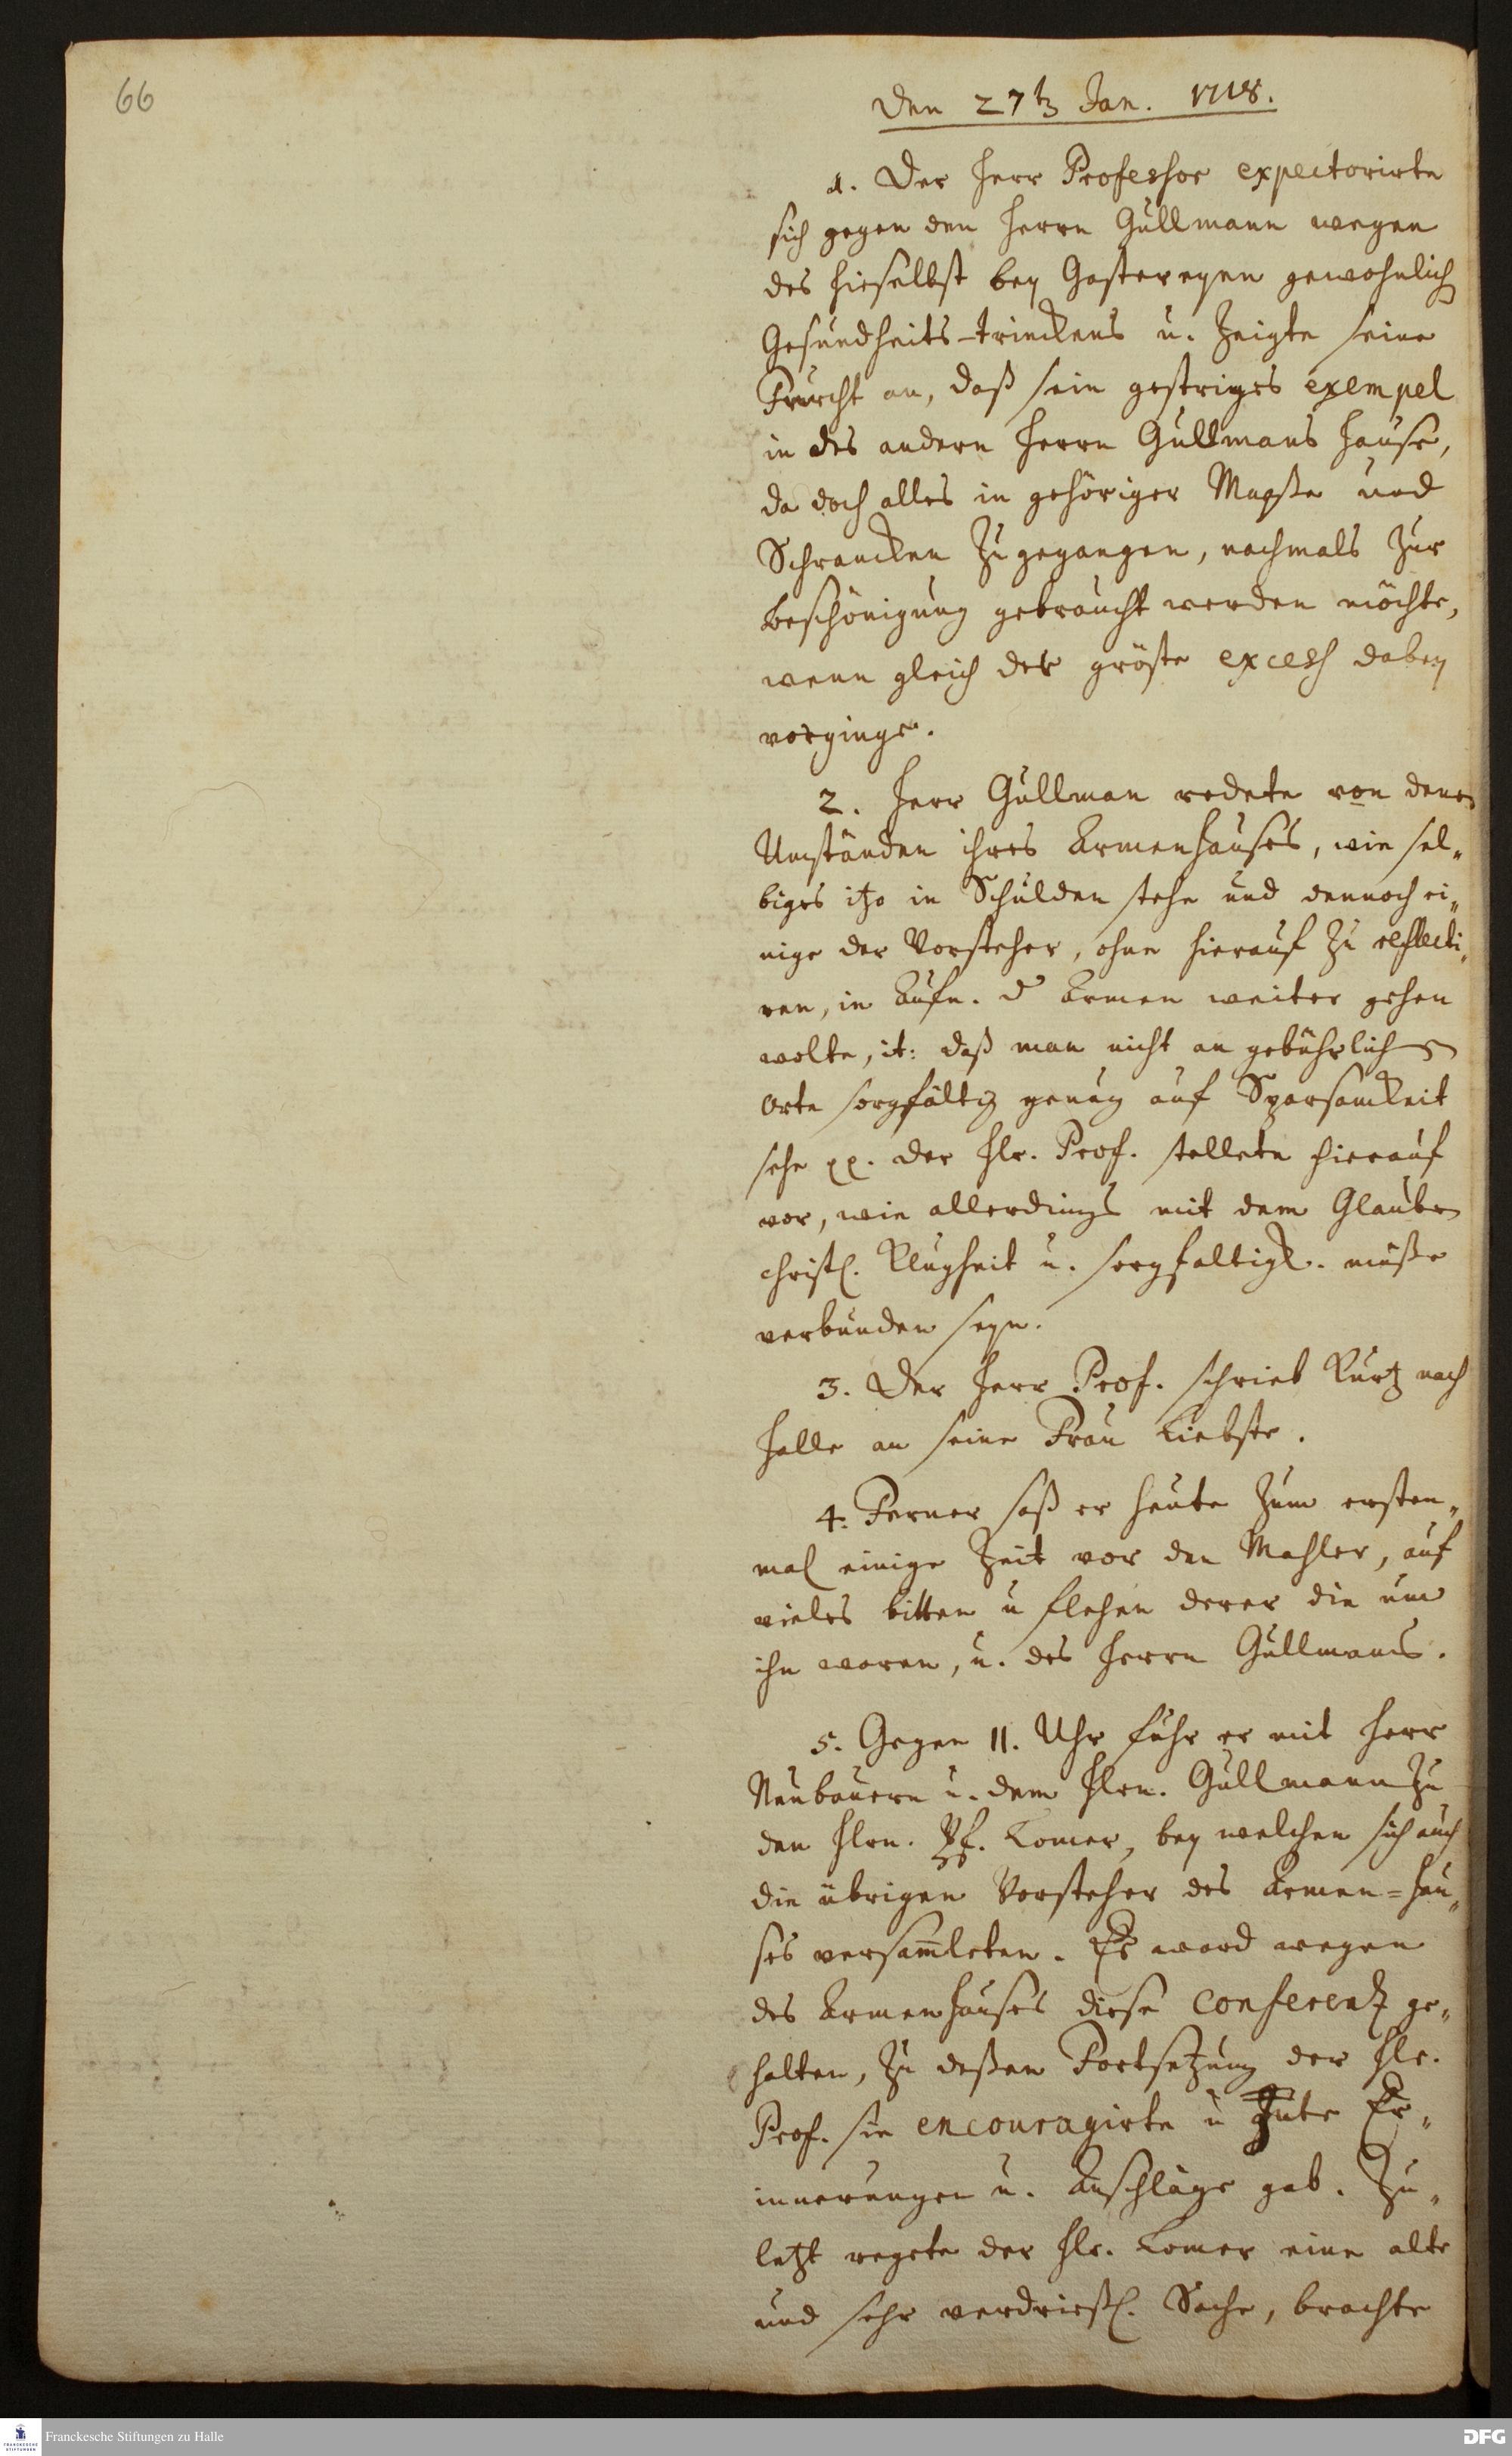 66
Den 27tn Jan. 1718.
1. Der Herr Professor expectorirte
sich gegen den Herrn Gullmann wegen
des hieselbst bey Gastereyen gewohnlich
Gesundheits-trinckens u. Zeigte seine
Furcht an, daß sein gestriges exempel
in des andern Herrn Gullmans Hause,
da doch alles in gehöriger Maaße und
Schrancken Zugegangen, nachmals Zur
beschönigung gebraucht werden möchte,
wenn gleich der gröste excess dabey
vorginge.
2. Herr Gullman redete von denen
Umständen ihres Armenhauses, wie sel„
biges itzo in Schulden stehe und dennoch ei„
nige der Vorsteher, ohne hierauf Zu reflecti„
ren, in Aufn. d Armen weiter gehen
wolte, it: daß man nicht an gebührlichen
Orte sorgfältig genug auf Sparsamkeit
sehe pp. der Hr. Prof. stellete hierauf
vor, wie allerdings mit dem Glauben
christl. Klugheit u. sorgfaltigk. müße
verbunden seyn.
3. Der Herr Prof. schrieb Kurtz nach
Halle an seine Frau Liebste.
4. Ferner saß er heute Zum ersten„
mal einige Zeit vor den Mahler, auf
vieles bitten u flehen derer die um
ihn waren, u. des Herrn Gullmans.
5. Gegen 11. Uhr fuhr er mit Herr
Neubauern u. dem Hrn. Gullmann Zu
den Hrn. Pf. Lomer, bey welchen sich auch
die übrigen Vorsteher des Armen=Hau„
ses versamleten. Es ward wegen
des Armenhauses diese Conferentz ge„
halten, Zu deßen Fortsetzung der Hr.
Prof. sie encouragirte u gute Er„
innerungen u. Anschläge gab. Zu„
letzt regete der Hr. Lomer eine alte
und sehr verdrießl. Sache, brachte
Franckesche Stiftungen zu Halle
DFG